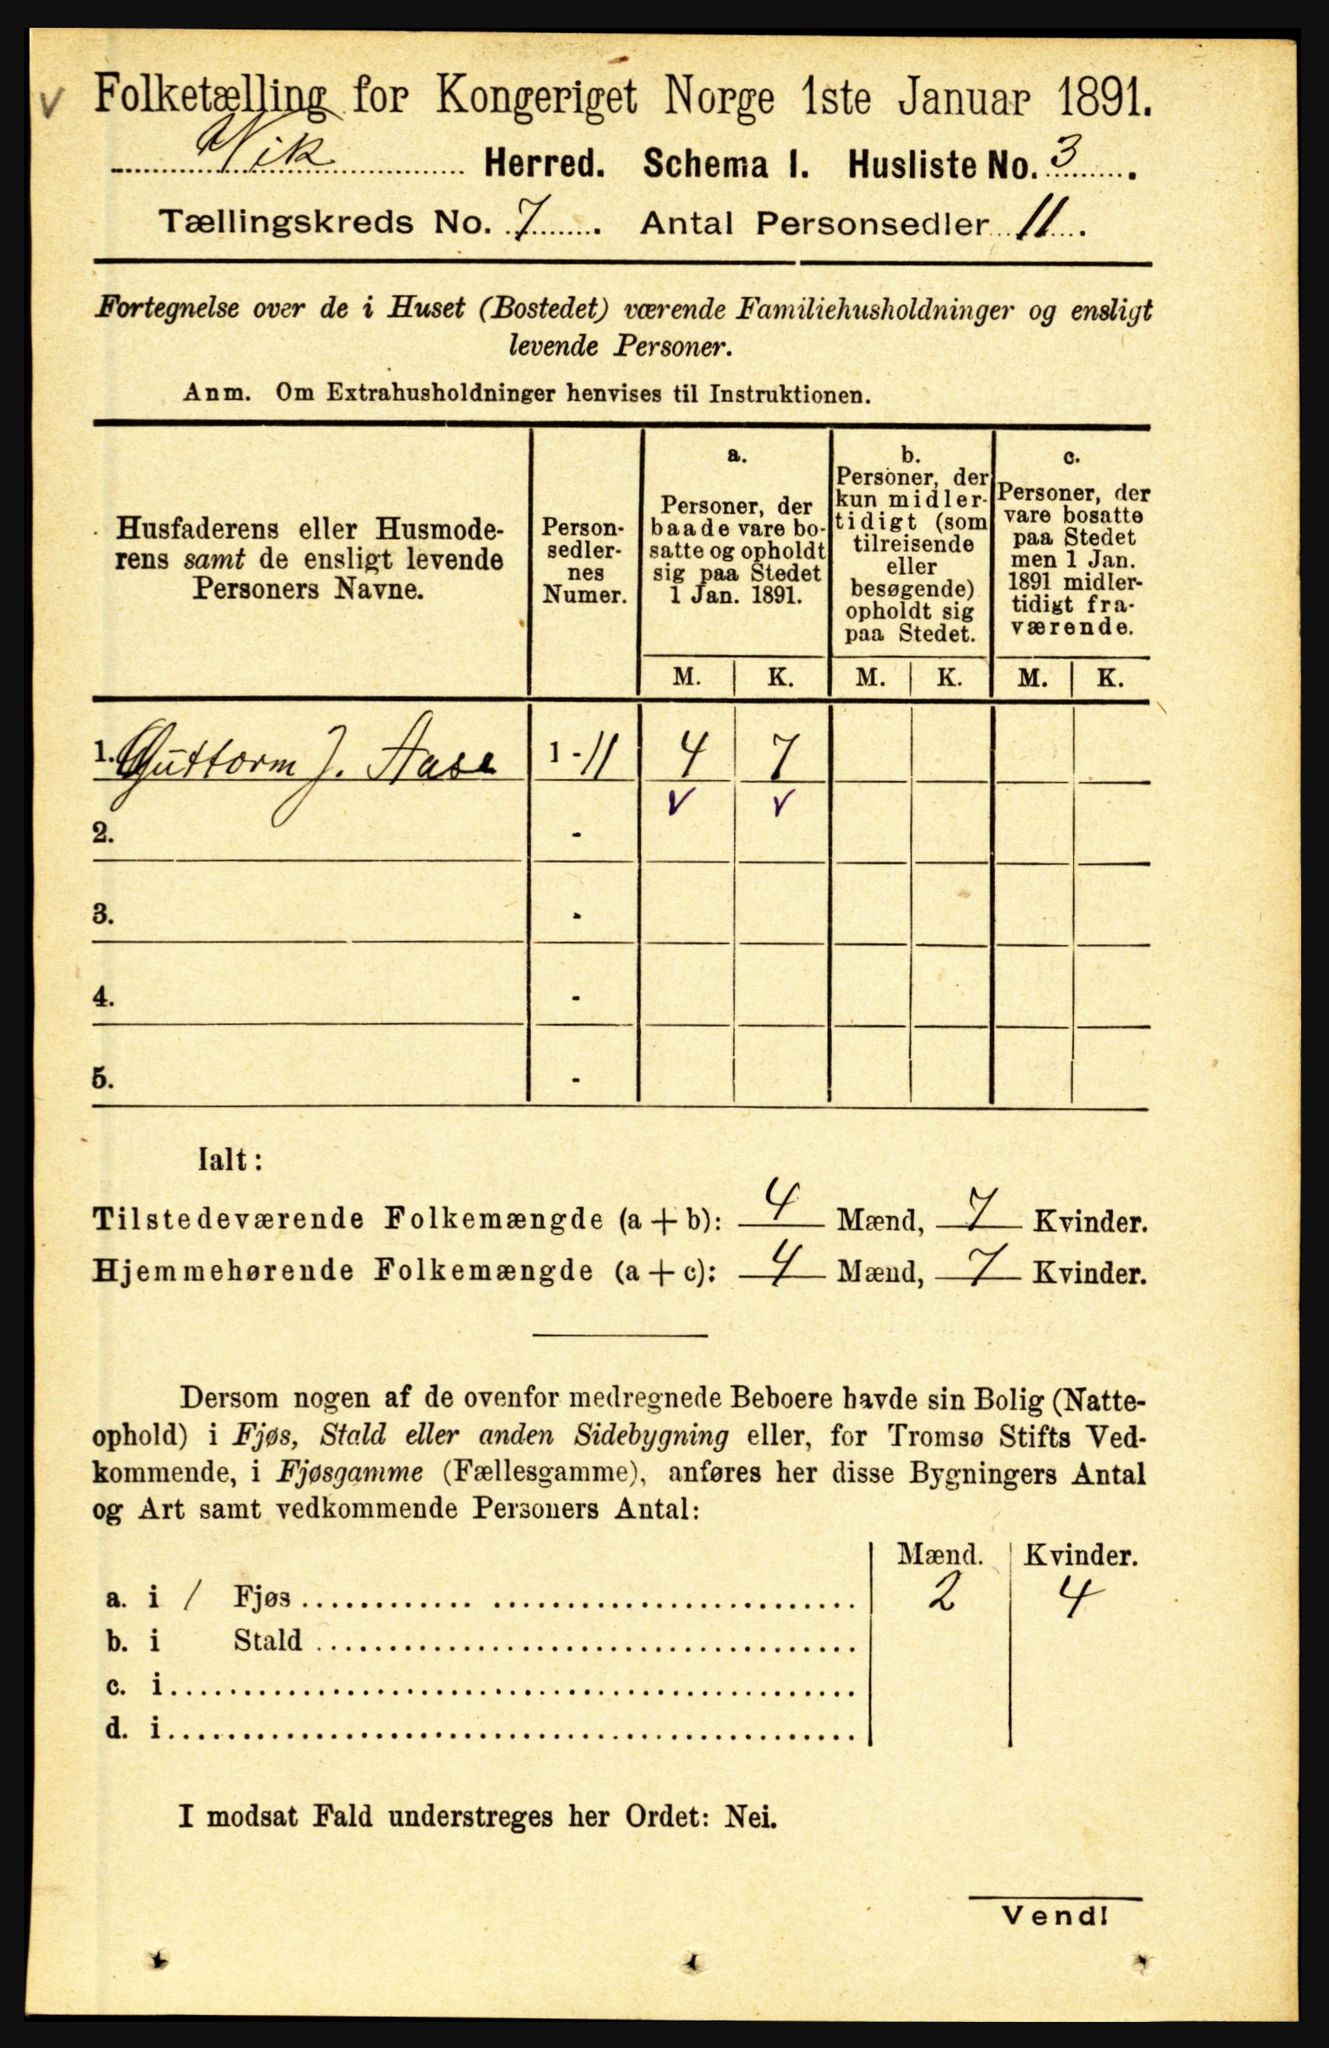 V Folketælling for Kongeriget Norge 1ste Januar 1891.
Vik Herred. Schema I. Husliste No. 3.
Tællingskreds No. 7. Antal Personsedler 11.
Fortegnelse over de i Huset (Bostedet) værende Familiehusholdninger og ensligt
levende Personer.
Anm. Om Extrahusholdninger henvises til Instruktionen.
Husfaderens eller Husmode-
rens samt de ensligt levende
Personers Navne.
Person-
sedler-
nes
Numer.
a.
Personer, der
baade vare bo-
satte og opholdt
sig paa Stedet
1 Jan. 1891.
b.
Personer, der
kun midler-
tidigt (som
tilreisende
eller
besøgende)
opholdt sig
paa Stedet.
c.
Personer, der
vare bosatte
paa Stedet
men 1 Jan.
1891 midler-
tidigt fra-
værende.
M. K. M. K. M. K.
1. Guttorm J. Aase 1 - 11 4 7
V V
2. -
3. -
4. -
5. -
Ialt:
Tilstedeværende Folkemængde (a + b): 4 Mænd, 7 Kvinder.
Hjemmehørende Folkemængde (a + c): 4 Mænd, 7 Kvinder.
Dersom nogen af de ovenfor medregnede Beboere havde sin Bolig (Natte-
ophold) i Fjøs, Stald eller anden Sidebygning eller, for Tromsø Stifts Ved-
kommende, i Fjøsgamme (Fællesgamme), anføres her disse Bygningers Antal
og Art samt vedkommende Personers Antal:
Mænd. Kvinder.
a. i / Fjøs 2 4
b. i Stald
c. i
d. i
I modsat Fald understreges her Ordet: Nei.
Vend!